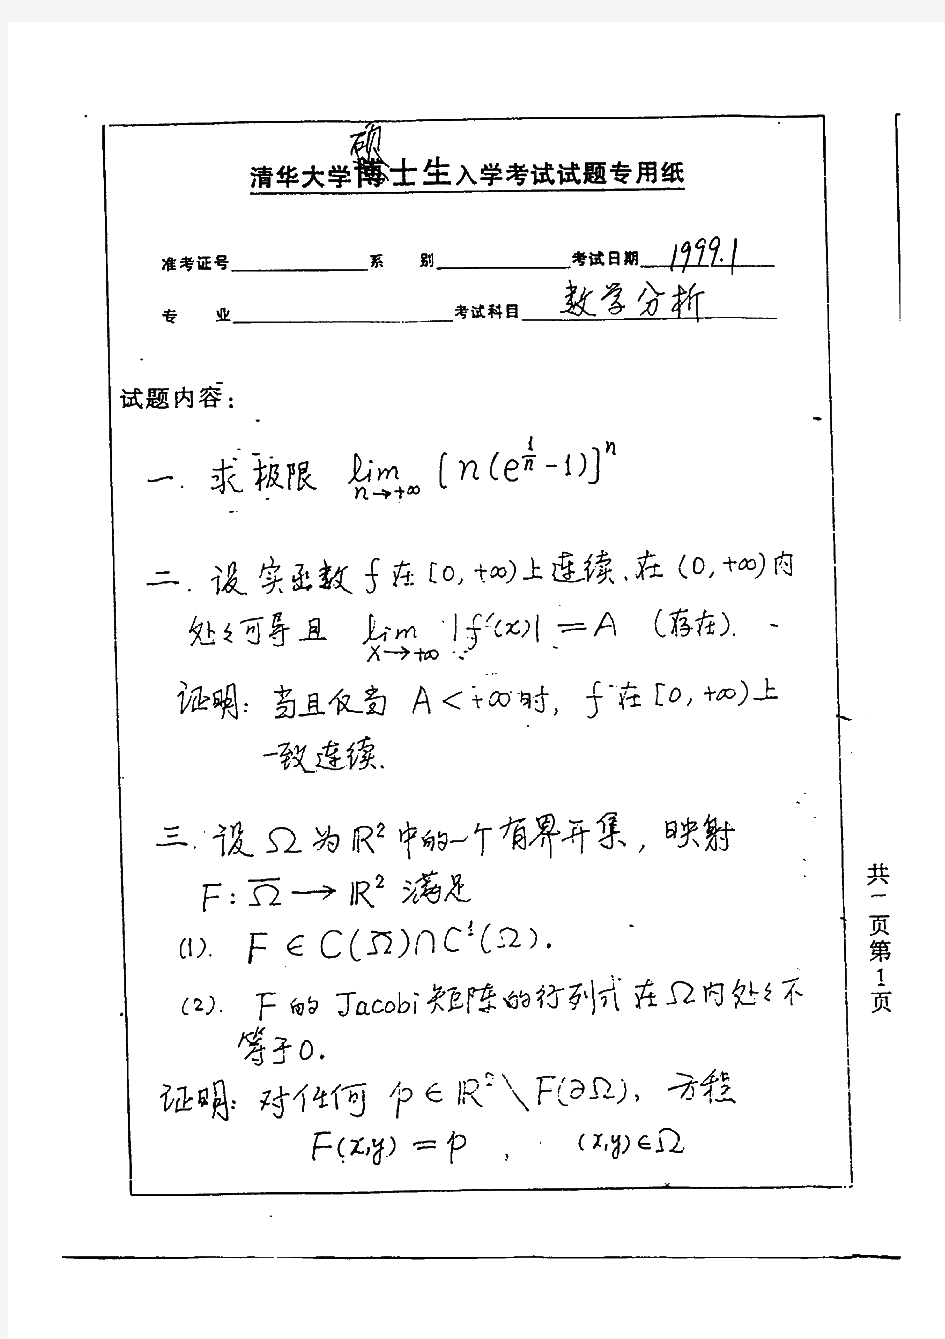 硕
清华大学博士生入学考试试题专用纸
准考证号 系 别 考试日期 1999.1
专 业 考试科目 数学分析
试题内容:
一. 求极限 lim_{n→+∞} [n(e^{1/n}-1)]^n
二. 设实函数 f 在 [0,+∞) 上连续、在 (0,+∞) 内
处处可导且 lim_{x→+∞} |f'(x)| = A (存在).
证明: 当且仅当 A<+∞ 时, f 在 [0,+∞) 上
一致连续.
三. 设 Ω 为 ℝ² 中的一个有界开集, 映射
F: Ω̅ → ℝ² 满足
(1). F ∈ C(Ω̅)∩C¹(Ω).
(2). F 的 Jacobi 矩阵的行列式在 Ω 内处处不
等于 0.
证明: 对任何 p ∈ ℝ² \ F(∂Ω), 方程
F(x,y) = p , (x,y)∈Ω
共一页第1页